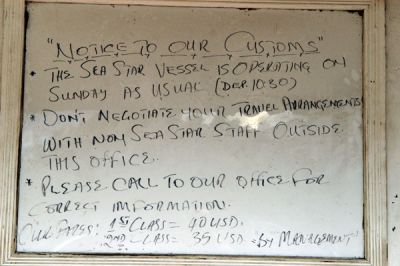 "NOTICE TO OUR CUSTOMS"
* THE SEA STAR VESSEL IS OPERATING ON
SUNDAY AS USUAL (DEP. 10:30)
* DON'T NEGOTIATE YOUR TRAVEL ARRANGEMENTS
WITH NON SEA STAR STAFF OUTSIDE
THIS OFFICE.
* PLEASE CALL TO OUR OFFICE FOR
CORRECT INFORMATION.
OUR PRISS: 1ST CLASS = 40 USD.
2ND CLASS = 35 USD. By MANAGEMENT